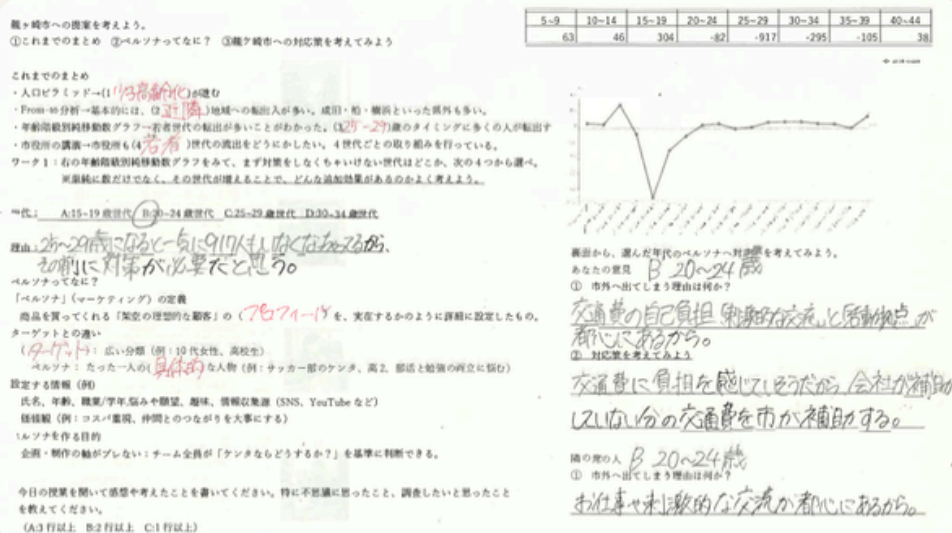 龍ヶ崎市への提案を考えよう。
①これまでのまとめ ②ペルソナってなに？ ③龍ケ崎市への対応策を考えてみよう
これまでのまとめ
・人口ピラミッド→(1 少子高齢化)が進む
・From-to分析→基本的には、(2 近隣)地域への転出入が多い。成田・柏・横浜といった県外も多い。
・年齢階級別純移動数グラフ→若者世代の転出が多いことがわかった。(3 25-29)歳のタイミングに多くの人が転出す
・市役所の講演→市役所も(4 若者)世代の流出をどうにかしたい。4世代ごとの取り組みを行っている。
ワーク1：右の年齢階級別純移動数グラフをみて、まず対策をしなくちゃいけない世代はどこか、次の4つから選べ。
※単純に数だけでなく、その世代が増えることで、どんな追加効果があるのかよく考えよう。
代： A:15~19歳世代 B:20~24歳世代 C:25~29歳世代 D:30~34歳世代
理由：25~29歳になると一気に917人もいなくなっちゃってるから、
その前に対策が必要だと思う。
ペルソナってなに？
「ペルソナ」(マーケティング)の定義
商品を買ってくれる「架空の理想的な顧客」の(プロフィール)を、実在するかのように詳細に設定したもの。
ターゲットとの違い
(ターゲット)：広い分類(例：10代女性、高校生)
ペルソナ：たった一人の(具体的)な人物(例：サッカー部のケンタ、高2、部活と勉強の両立に悩む)
設定する情報(例)
氏名、年齢、職業/学年,悩みや願望、趣味、情報収集源(SNS、YouTubeなど)
価値観(例：コスパ重視、仲間とのつながりを大事にする)
ルソナを作る目的
企画・制作の軸がブレない：チーム全員が「ケンタならどうするか？」を基準に判断できる。
今日の授業を聞いて感想や考えたことを書いてください。特に不思議に思ったこと、調査したいと思ったこと
を教えてください。
(A:3行以上 B:2行以上 C:1行以上)
5~9 10~14 15~19 20~24 25~29 30~34 35~39 40~44
63 46 304 -82 -917 -295 -105 38
裏面から、選んだ年代のペルソナへ対策を考えてみよう。
あなたの意見 B 20~24歳
① 市外へ出てしまう理由は何か？
交通費の自己負担「刺激的な交流」と活動拠点」が
都心にあるから。
② 対応策を考えてみよう
交通費に負担を感じていそうだから、会社が補助
していない分の交通費を市が補助する。
隣の席の人 B 20~24歳
① 市外へ出てしまう理由は何か？
お仕事や刺激的な交流が都心にあるから。